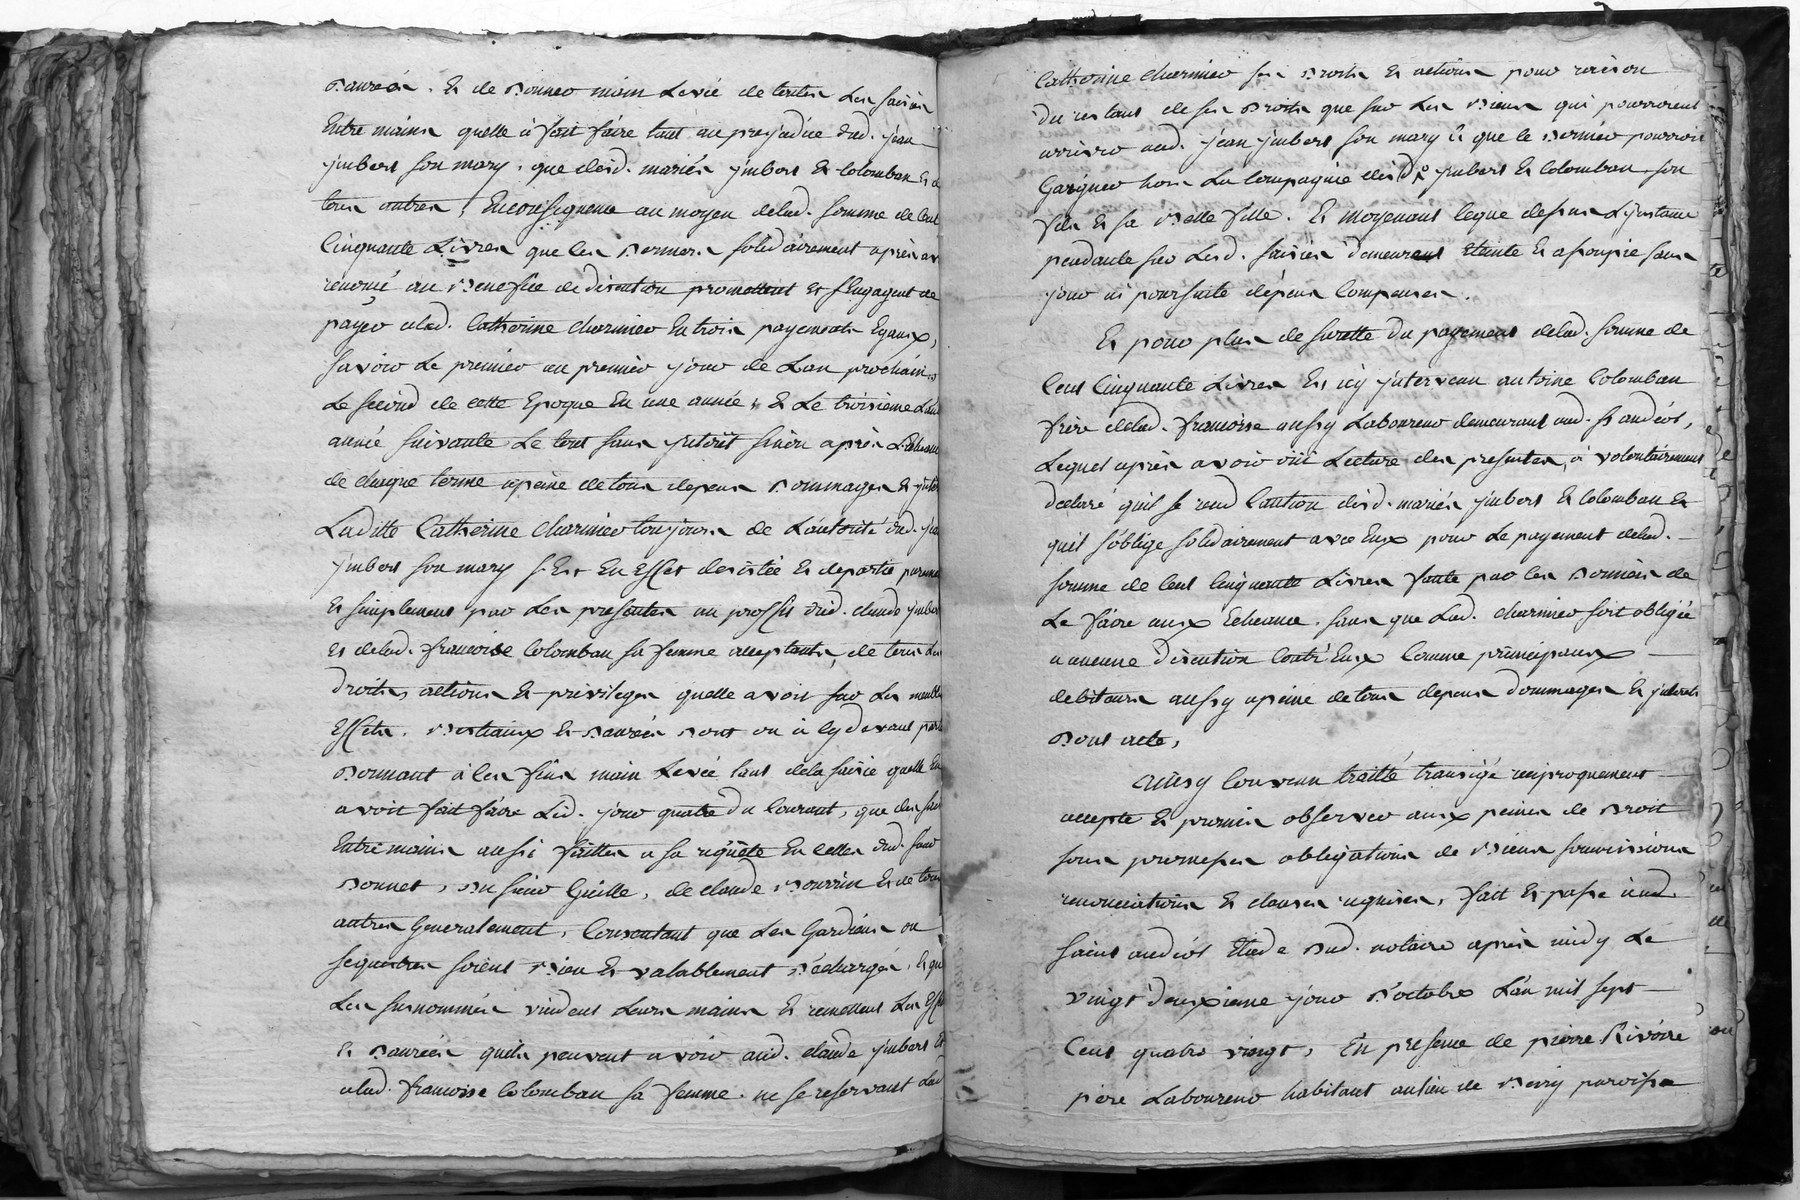 Danrées. Et de Donner main Levée de toutes Les saisies
Entre mains quelle à fait fáire tant au prejudice dud. jean
ymbert son mary, que desd. mariés ymbert Et Colomban Et de
tous autres; En consequence au moyen delad. somme de Cent
Cinquante Livres que les Derniers solidairement après av
renoncé au Benefice de discution promettent et s'Engagent de
payer alad. Catherine charmier En trois payements Egaux,
savoir Le premier au premier jour de Lan prochain,
Le second de cette Epoque En une année, Et Le troisieme L'au
année suivante Le tout sans jnterêt sinon après L'Echeance
de chaque terme apeine de tous depens Dommages Et jnter
Laditte Catherine charmier toujours de L'autorité dud. jean
ymbert son mary s'Est En Effet desistée Et departie purement
Et simplement par Les presentes au proffit dud. claude ymber
Et delad. francoise Colomban sa femme acceptants, de tous Les
droits, actions Et privileges quelle avoit sur Les meubles
Effets, Bestiaux Et Danrées Dont on à cy devant parlé
Donnant à Ces fins main Levée tant dela saisie quelle En
avoit fait fáire Led. jour quatre du Courant, que des sais
Entre mains aussi faittes a sa requête En celles dud. sieur
Donnet, Du sieur Guille, de claude Bourrin Et de tous
autres Generalement, Consentant que Les Gardiens ou
sequestres soient Bien Et valablement Déchargés, Et que
Les susnommés vuident Leurs mains Et remettent Les Eff
Et Danrées quils peuvent avoir aud. claude ymbert Et
alad. francoise Colomban sa femme. ne se reservant Lad
Catherine charmier ses Droits Et actions pour raison
du restant de ses Droits que sur Les Biens qui pourroient
arriver aud. jean ymbert son mary Et que le Dernier pourroit
Gaigner hors La Compagnie desd. ymbert Et Colomban, son
fils Et sa Belle fille. Et moyenant Ceque dessus L'jnstance
pendante sur Lesd. saisies demeurent Eteinte Et assoupie sans
jour ni poursuite dépens Compensés.
Et pour plus de suretté du payement delad. somme de
Cent Cinquante Livres Est icy jntervenu antoine Colomban
frere delad. francoise aussy Laboureur demeurant aud. St andéol,
Lequel après avoir oüi Lecture des presentes, à volontairement
déclaré quil se rend Caution desd. mariés ymbert Et Colomban Et
quil s'oblige solidairement avec Eux pour Le payement delad.
somme de Cent Cinquante Livres faute par les Derniers de
Le fáire aux Echeance, sans que Lad. charmier soit obligée
a aucune discution Contr'Eux Comme principaux
debiteurs aussy apeine de tous depens dommages Et jnterets
Dont acte,
Ainsy Convenu traitté transigé reciproquement
accepté Et promis observer aux peines de Droit
sous promesses obligations de Biens soumissions
renonciations Et clauses requises, fait Et passé aud.
saint andéol Etude Dud. notaire après midy Le
vingt deuxieme jour D'octobre L'an mil sept
Cent quatre vingt, En presence de pierre Rivoire
pere Laboureur habitant au lieu de Bevy paroisse